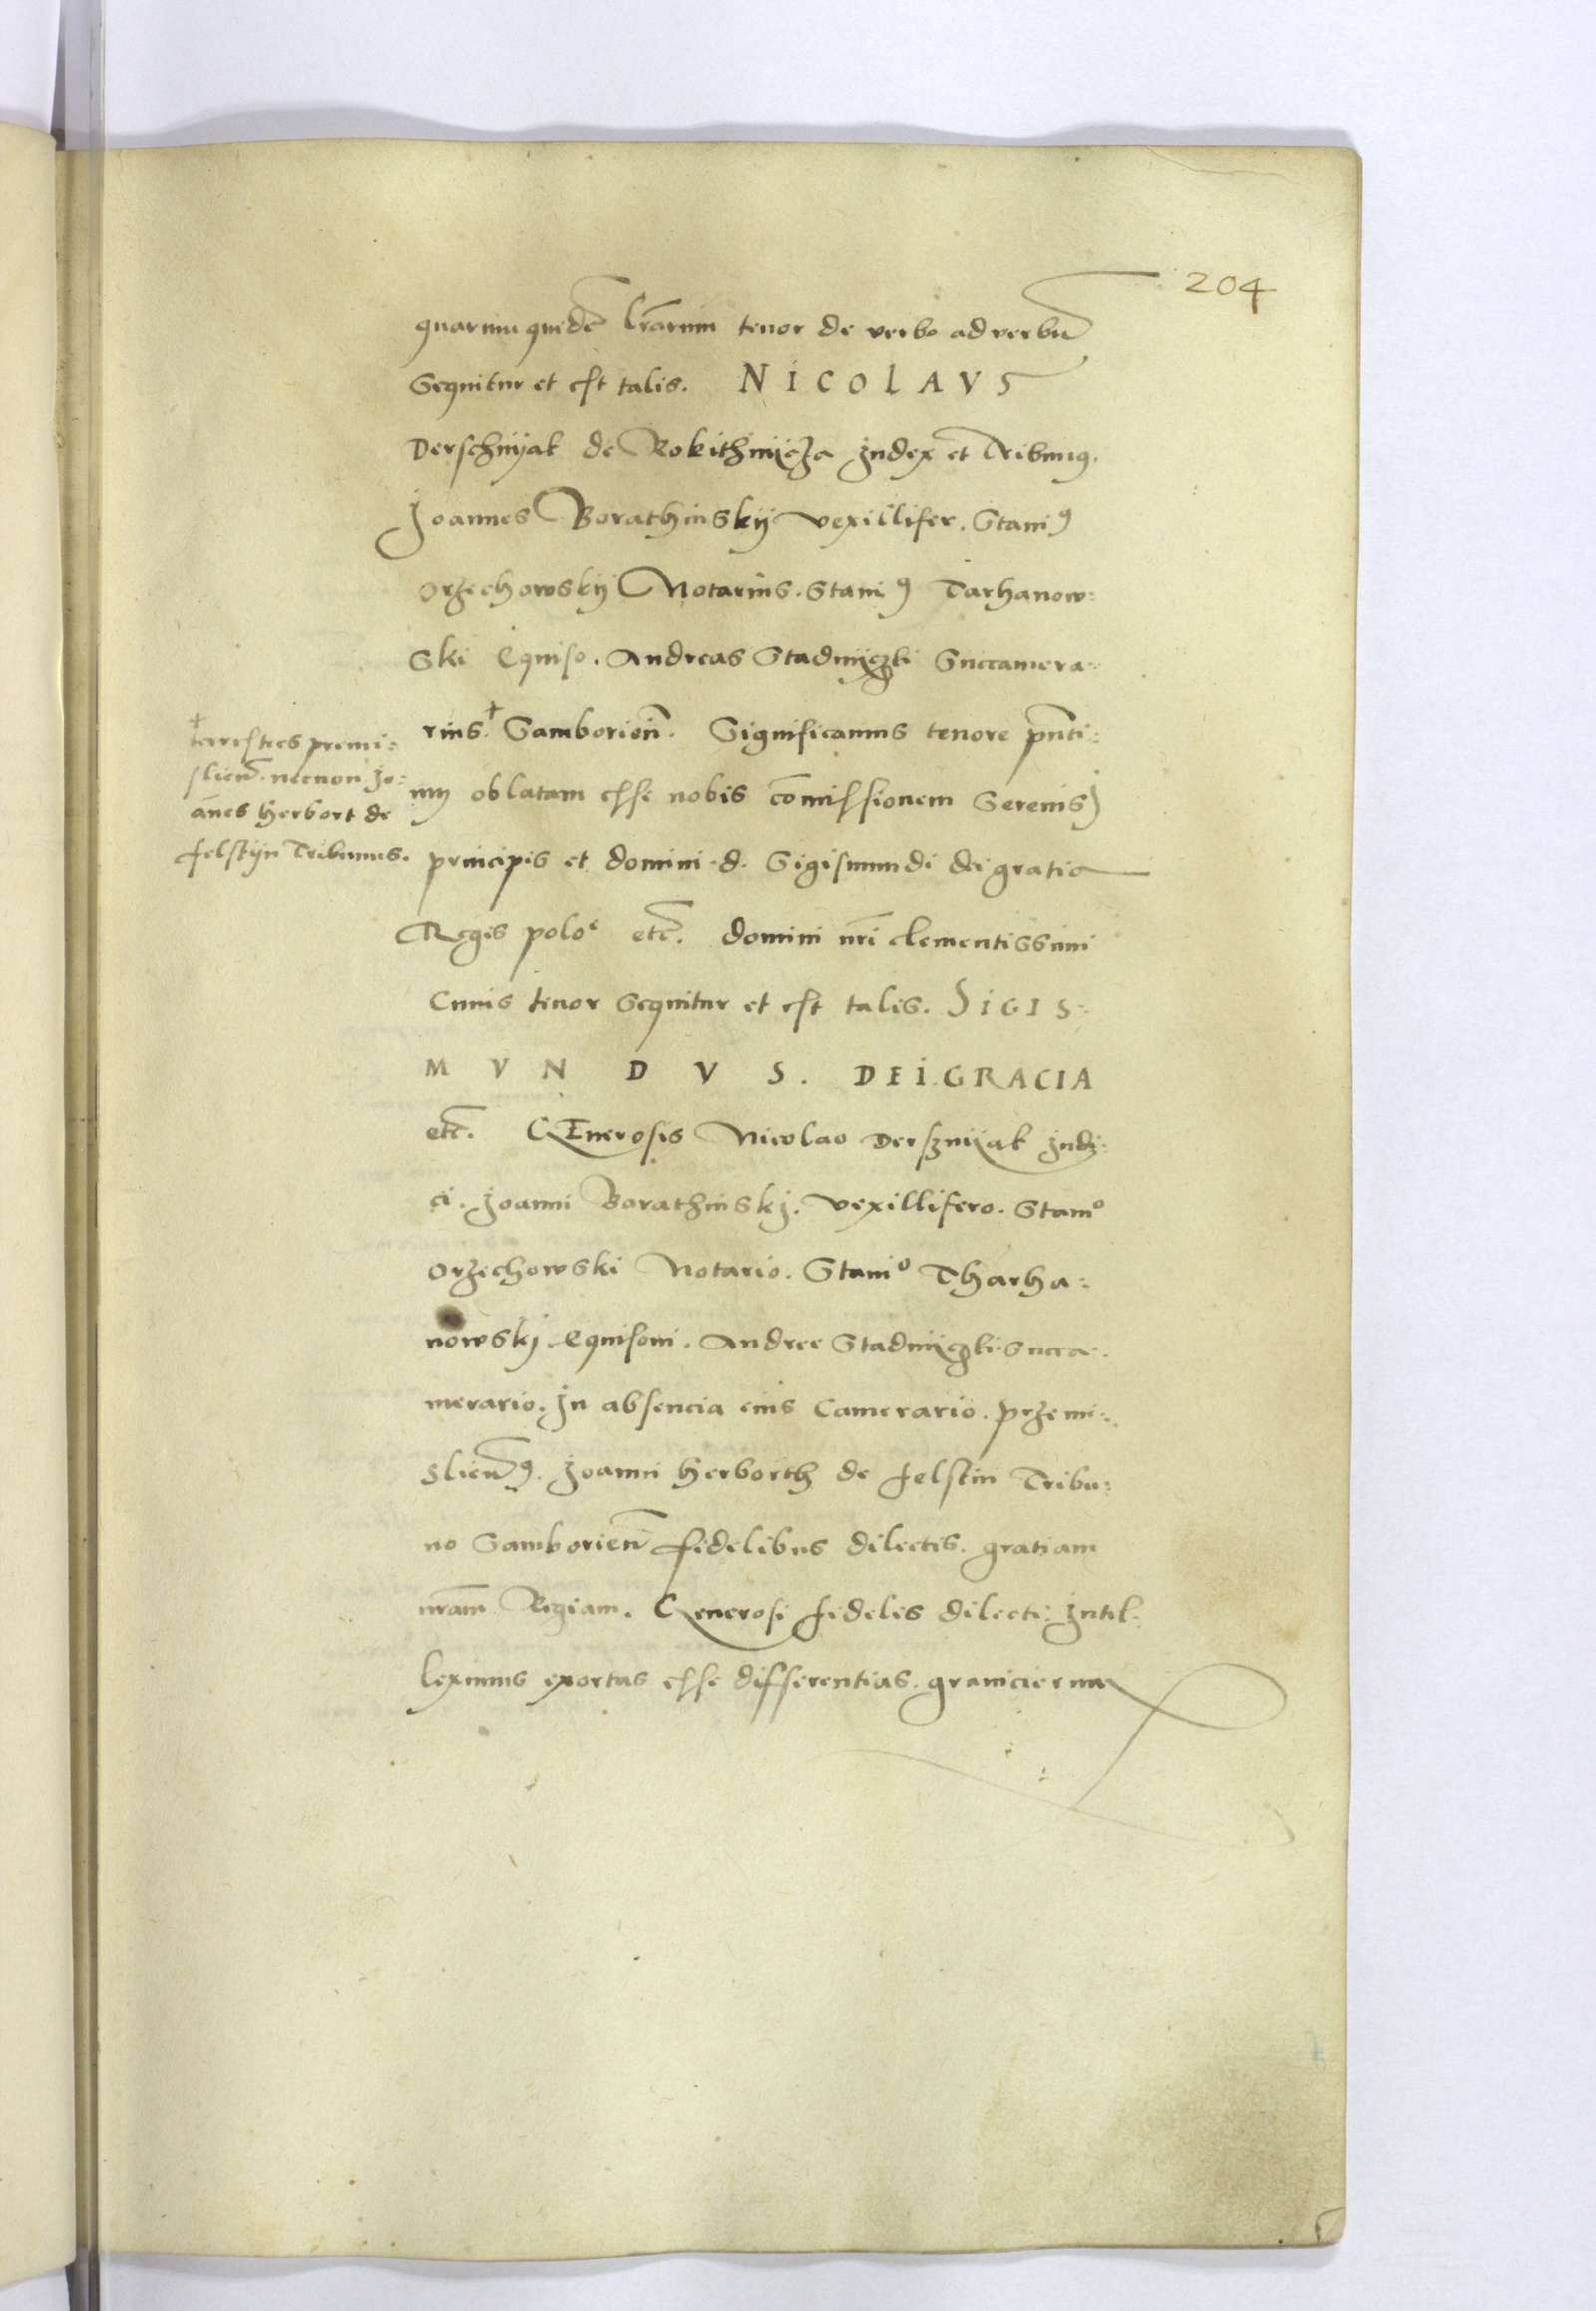 204
quarum quidē lrārum tenor de verbo ad verbū
Sequitur et est talis. NICOLAVS
Derschnyak de Rokithnycza Judex et Tribunus.
Joannes Borathinskij vexillifer. Staniꝰ
Orzechowskij Notarius. Staniꝰ Tarhanow:
Ski Equiso. Andreas Stadnyczki Succamera:
rius.† Samborieñ. Significamus tenore pn̄ti:
um oblatam esse nobis cōmissionem Serenis
principis et domini d. Sigismundi dei gratia
Regis poloᵉ etc̄. domini nr̄i clementissimi
Cuius tenor sequitur et est talis. SIGIS:
MVNDVS. DEI GRACIA
etc̄. GEnerosis Nicolao Dersznyak Judi:
ci. Joanni Borathinskj. vexillifero. Stanᵒ
Orzechowski Notario. Staniᵒ Tharha:
nowskj Equisoni. Andree Stadnyczki succa:
merario. In absencia eius Camerario. przemi:
slieñ. Joanni Herborth de felstin Tribu:
no Samborieñ fidelibus dilectis. gratiam
nrām Regiam. Generosi fideles dilecti. Intel:
leximus exortas esse differentias. granicierum
† terrestres premi:
slieñ. necnon Jo:
ānes Herbort de
felstyn Tribunus.